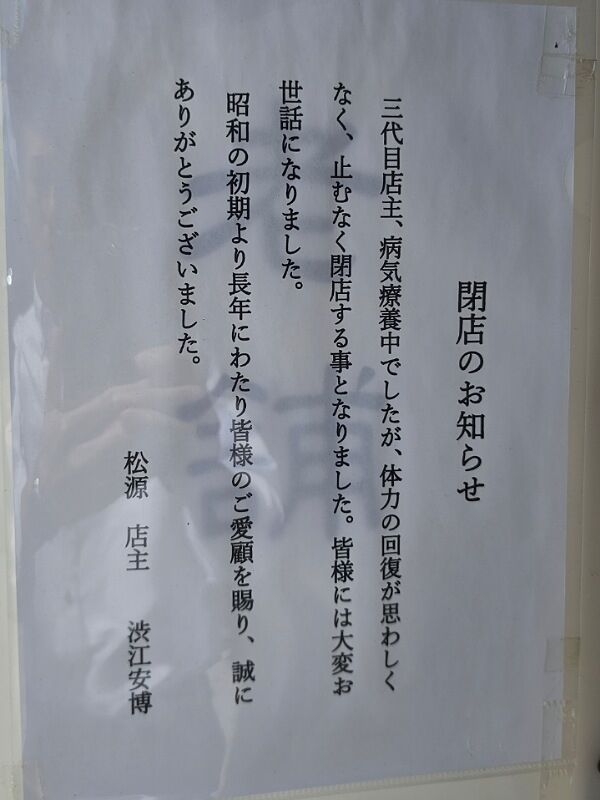 閉店のお知らせ
三代目店主、病気療養中でしたが、体力の回復が思わしく
なく、止むなく閉店する事となりました。皆様には大変お
世話になりました。
昭和の初期より長年にわたり皆様のご愛顧を賜り、誠に
ありがとうございました。
松源　店主　渋江安博